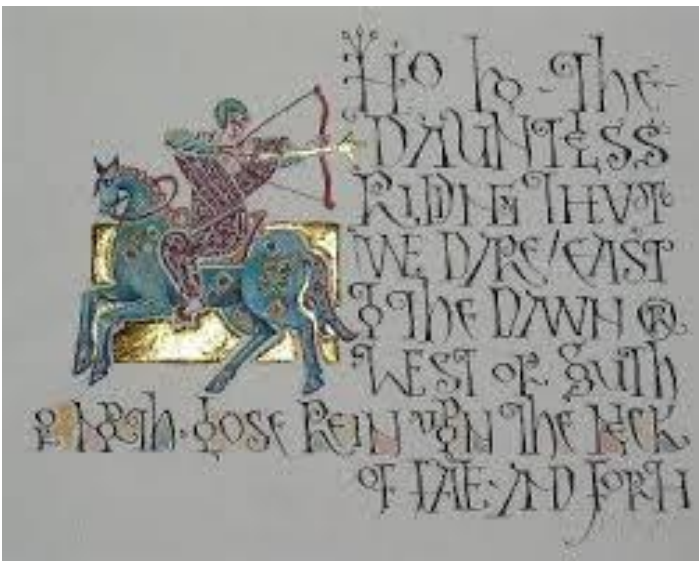 Ho ho - The -
DAUNTLESS
RIDING THAT
WE DARE/EAST
To The DAWN OR
WEST OR South
OR North · loose Rein upon The Neck
OF FATE · AND forth